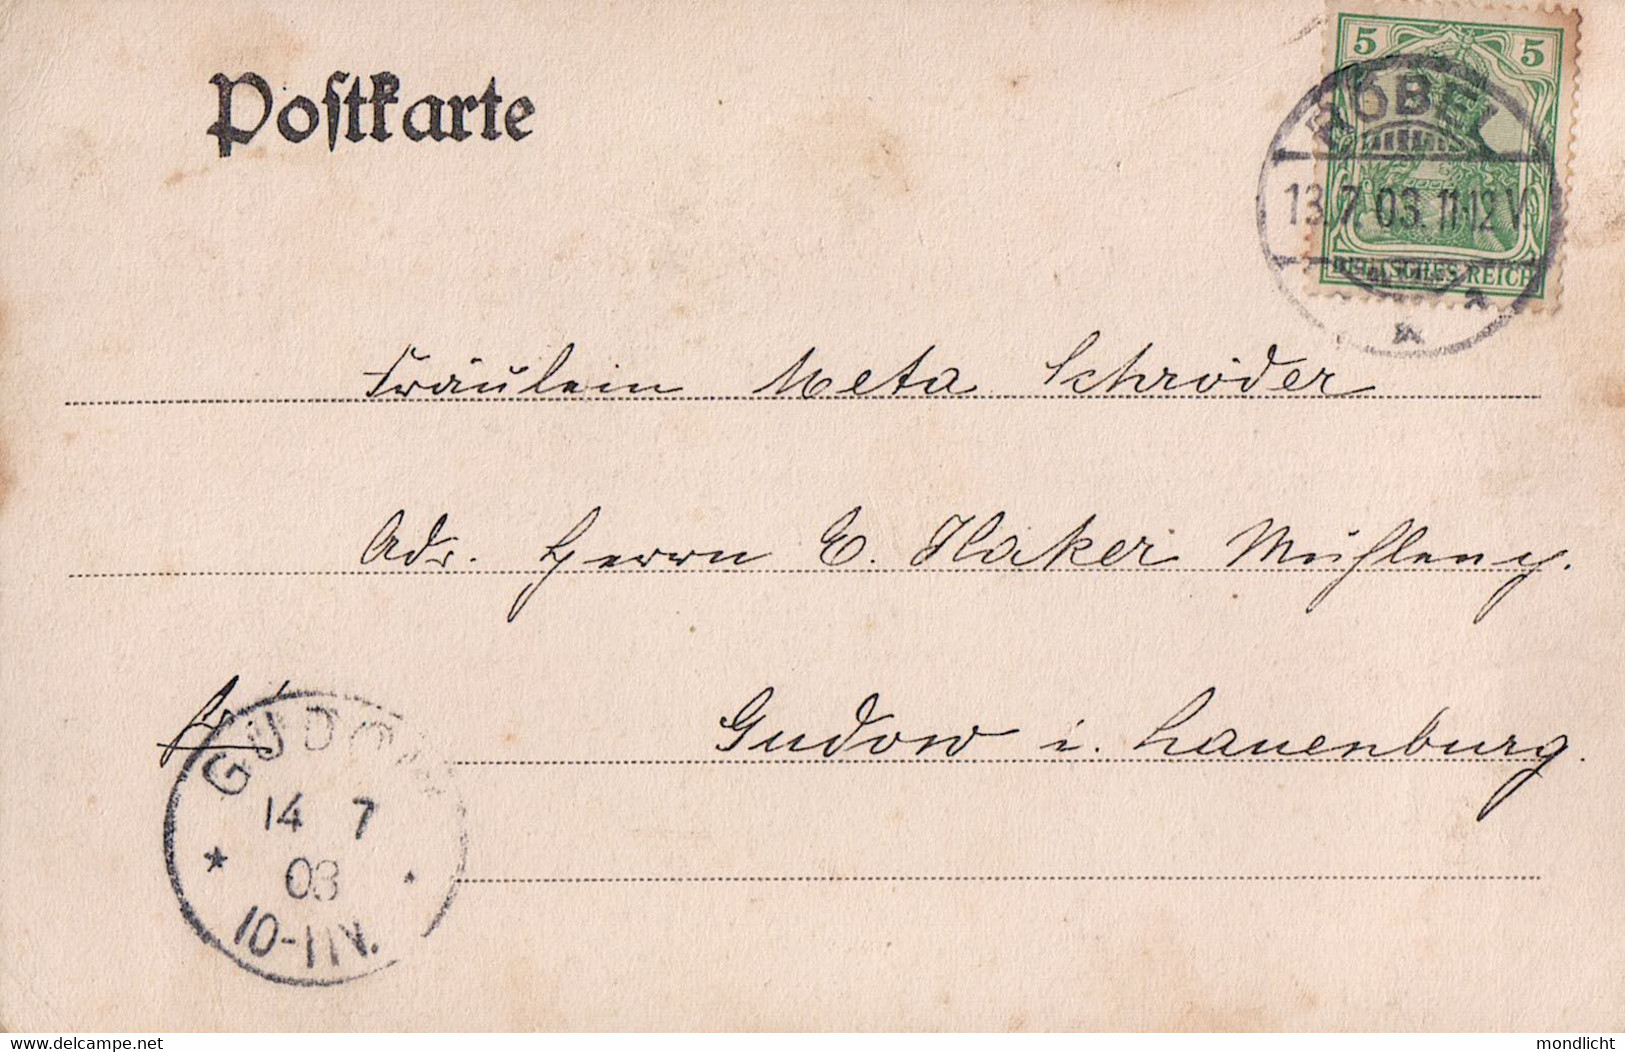 Postkarte
5 5
RÖBEL
13.7.03.11-12V.
DEUTSCHES REICH
Fräulein Meta Schröder
Adr. Herrn E. Haker Mühleng.
Gudow i. Lauenburg.
GUDOW
14 7
03
10-11V.
www.delcampe.net
mondlicht